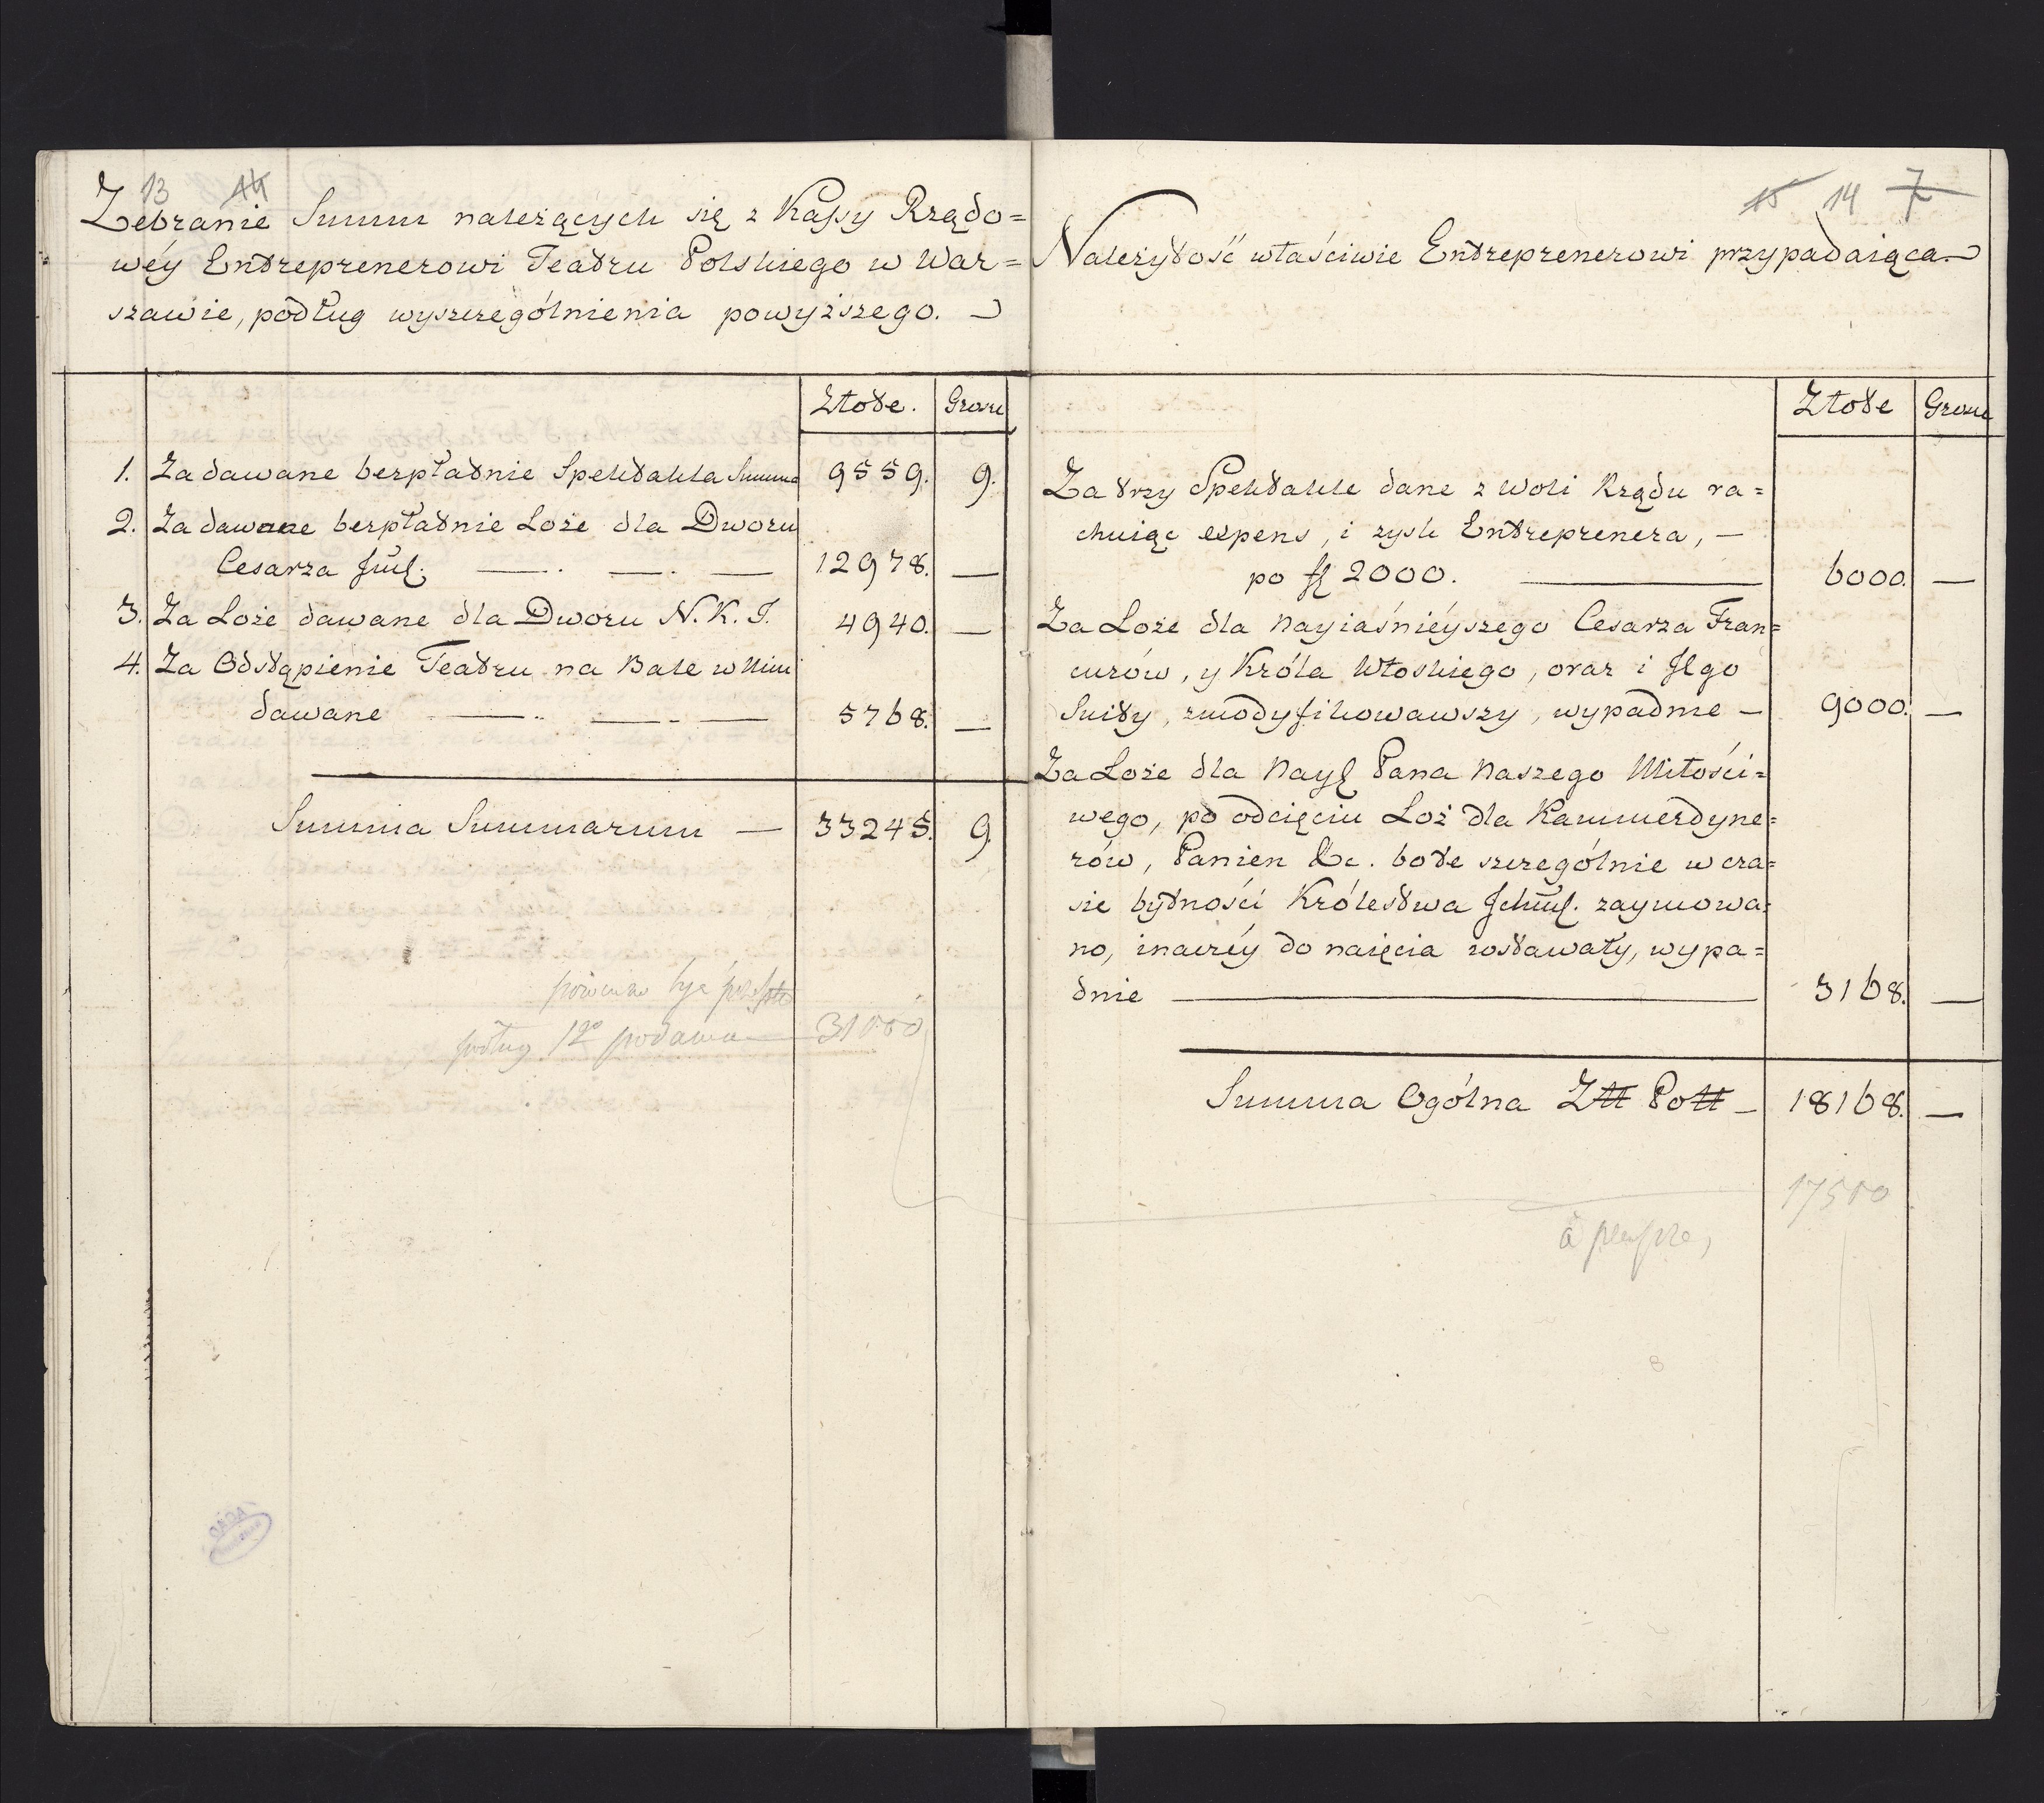 13 14
Zebranie Summ należących się z Kassy Rządo=
wéy Entreprenerowi Teatru Polskiego w War=
szawie, podług wyszczególnienia powyższego.
Złote. Grosze
1. Za dawane bezpłatnie Spektakla Summa 9559. 9.
2. Za dawane bezpłatnie Loże dla Dworu
Cesarza Jmć. 12978. —
3. Za Loże dawane dla Dworu N. K. J. 4940. —
4. Za Odstąpienie Teatru na Bale w Nim
dawane 5768. —
Summa Summarum — 33245. 9.
powinno być
podług 1go podania 31000
15 14 7
Należytość właściwie Entreprenerowi przypadaiąca
Złote Grosze
Za trzy Spektakle dane z woli Rządu ra=
chuiąc expens, i zysk Entreprenera, —
po fl 2000. 6000. —
Za Loże dla Nayiaśnieyszego Cesarza Fran=
cuzów, y Króla Włoskiego, oraz i Jego
Suity, zmodyfikowawszy, wypadnie — 9000. —
Za Loże dla Nayj Pana Naszego Miłości=
wego, po odcięciu Loż dla Kammerdyne=
rów, Panien &c. bo te szczególnie w cza=
sie bytności Królestwa Jchmć. zaymowa=
no, inaczéy do naięcia zostawały, wypa=
dnie 3168. —
Summa Ogólna Złł Poll — 18168. —
17500